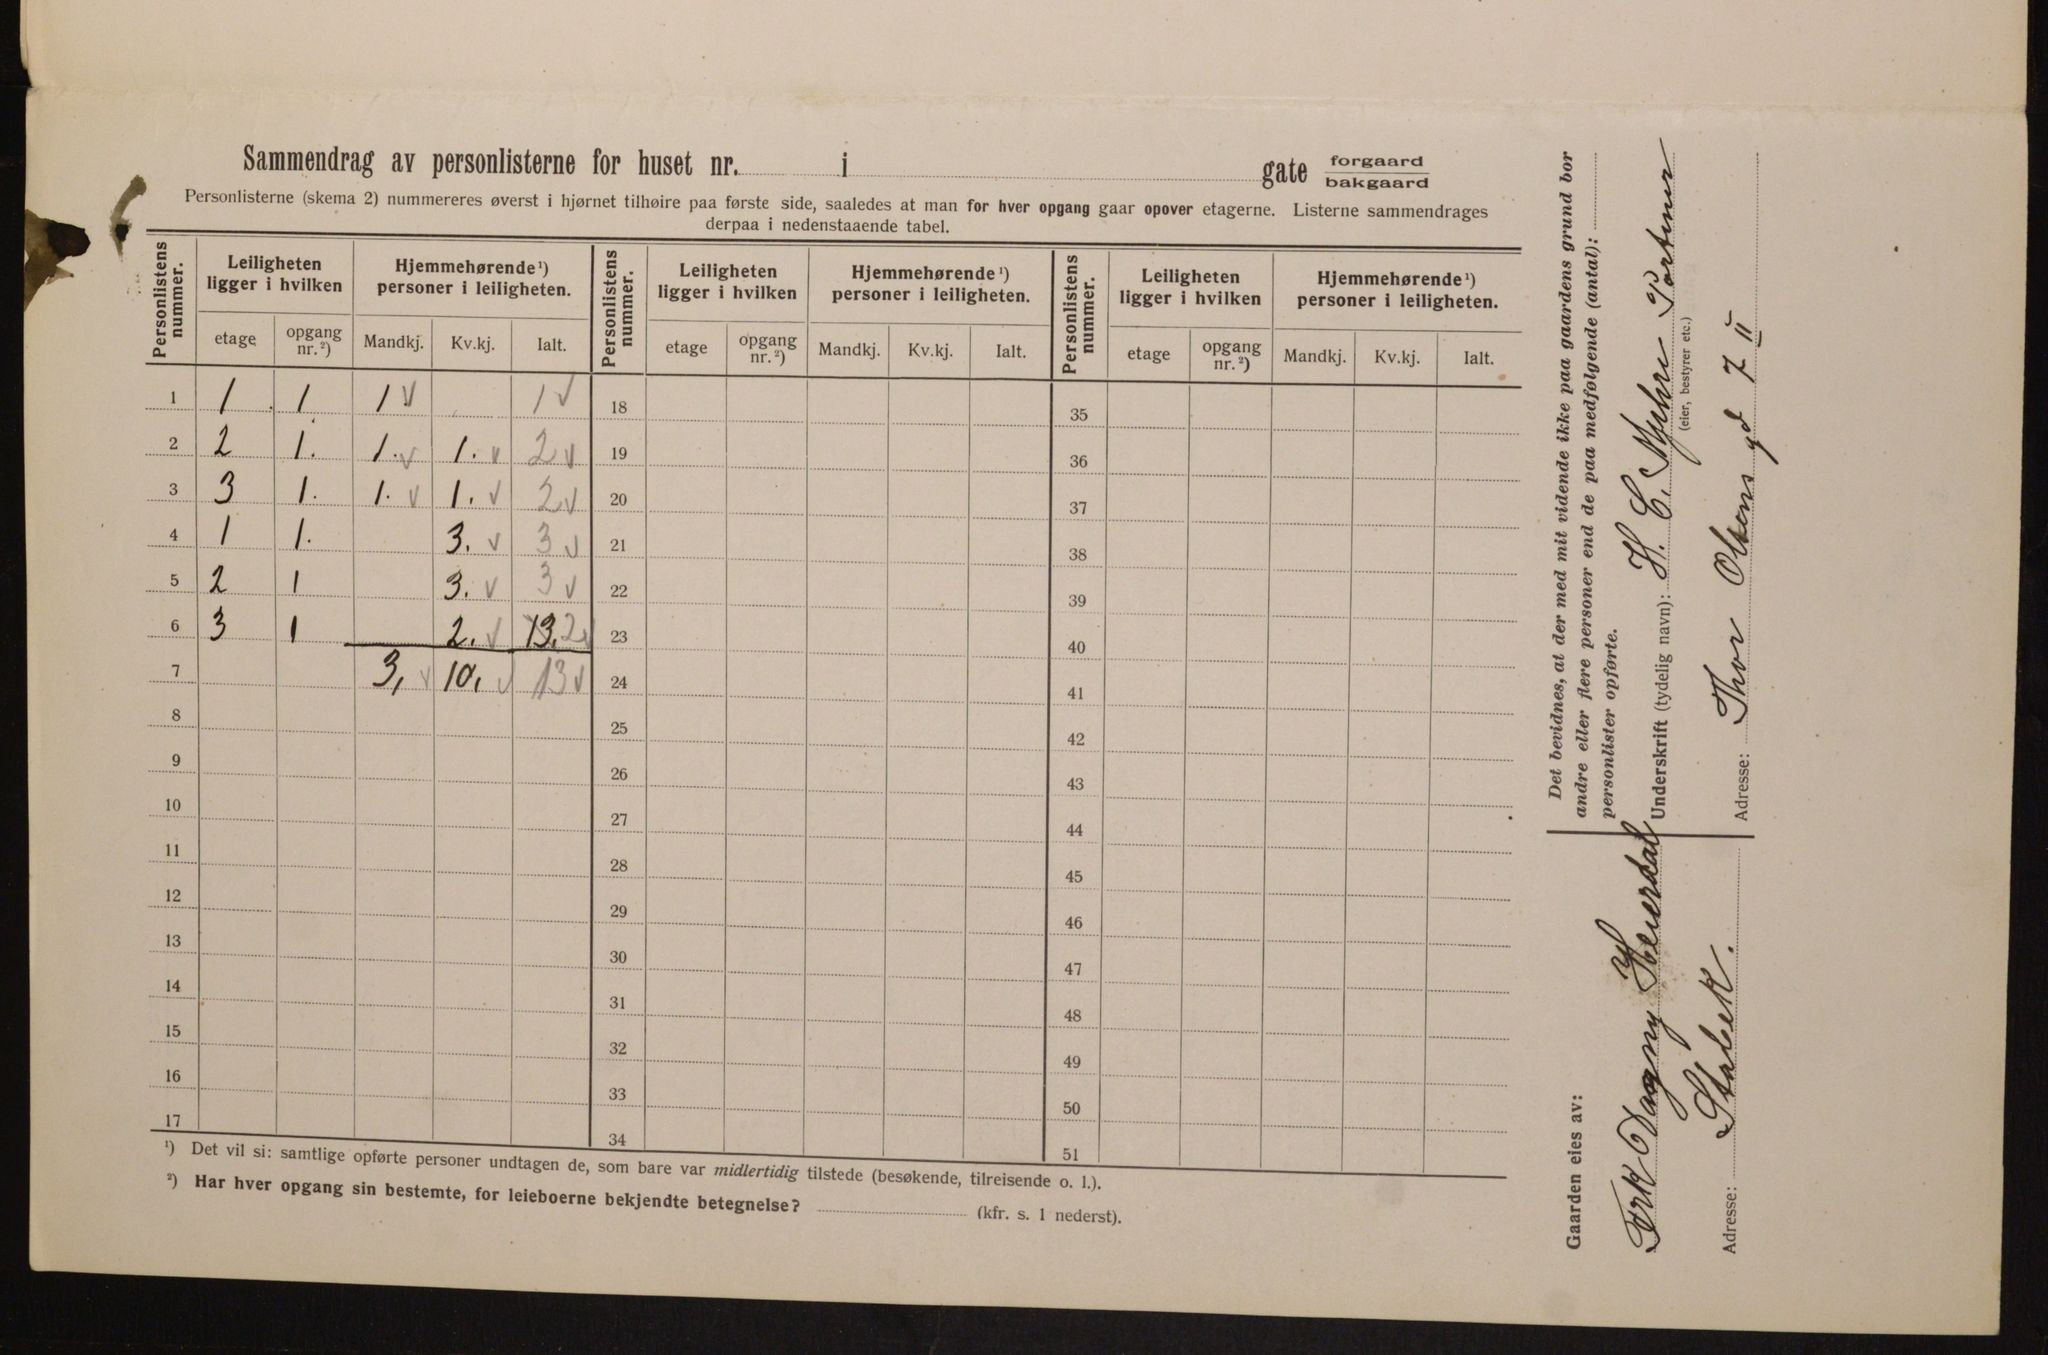 Sammendrag av personlisterne for huset nr. i gate forgaard
bakgaard
Personlisterne (skema 2) nummereres øverst i hjørnet tilhøire paa første side, saaledes at man for hver opgang gaar opover etagerne. Listerne sammendrages
derpaa i nedenstaaende tabel.
Personlistens nummer. Leiligheten ligger i hvilken Hjemmehørende ¹) personer i leiligheten. Personlistens nummer. Leiligheten ligger i hvilken Hjemmehørende ¹) personer i leiligheten. Personlistens nummer. Leiligheten ligger i hvilken Hjemmehørende ¹) personer i leiligheten.
etage opgang nr. ²) Mandkj. Kv.kj. Ialt. etage opgang nr. ²) Mandkj. Kv.kj. Ialt. etage opgang nr. ²) Mandkj. Kv.kj. Ialt.
1 1 1 1 v 1 v 18 35
2 2 1. 1. v 1. v 2 v 19 36
3 3 1. 1. v 1. v 2 v 20 37
4 1 1. 3. v 3 v 21 38
5 2 1 3. v 3 v 22 39
6 3 1 2. v 13. 2 v 23 40
7 3, v 10, v 13 v 24 41
8 25 42
9 26 43
10 27 44
11 28 45
12 29 46
13 30 47
14 31 48
15 32 49
16 33 50
17 34 51
¹) Det vil si: samtlige opførte personer undtagen de, som bare var midlertidig tilstede (besøkende, tilreisende o. l.).
²) Har hver opgang sin bestemte, for leieboerne bekjendte betegnelse? (kfr. s. 1 nederst).
Det bevidnes, at der med mit vidende ikke paa gaardens grund bor
andre eller flere personer end de paa medfølgende (antal):
personlister opførte.
Underskrift (tydelig navn): H. C. Myhre
(eier, bestyrer etc.)
Adresse: Thor Olsens gd 7 II
Gaarden eies av:
Frk Dagny Heierdal
Adresse: Stabæk.